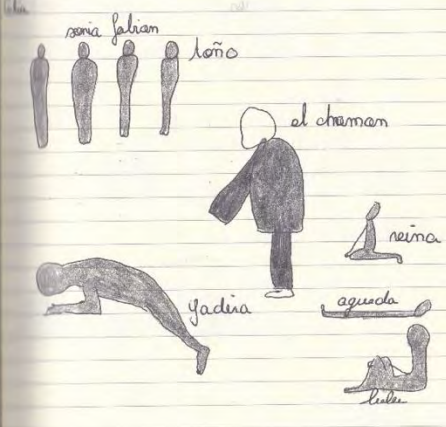 sonia fabian
toño
el chaman
reina
yadira
agueda